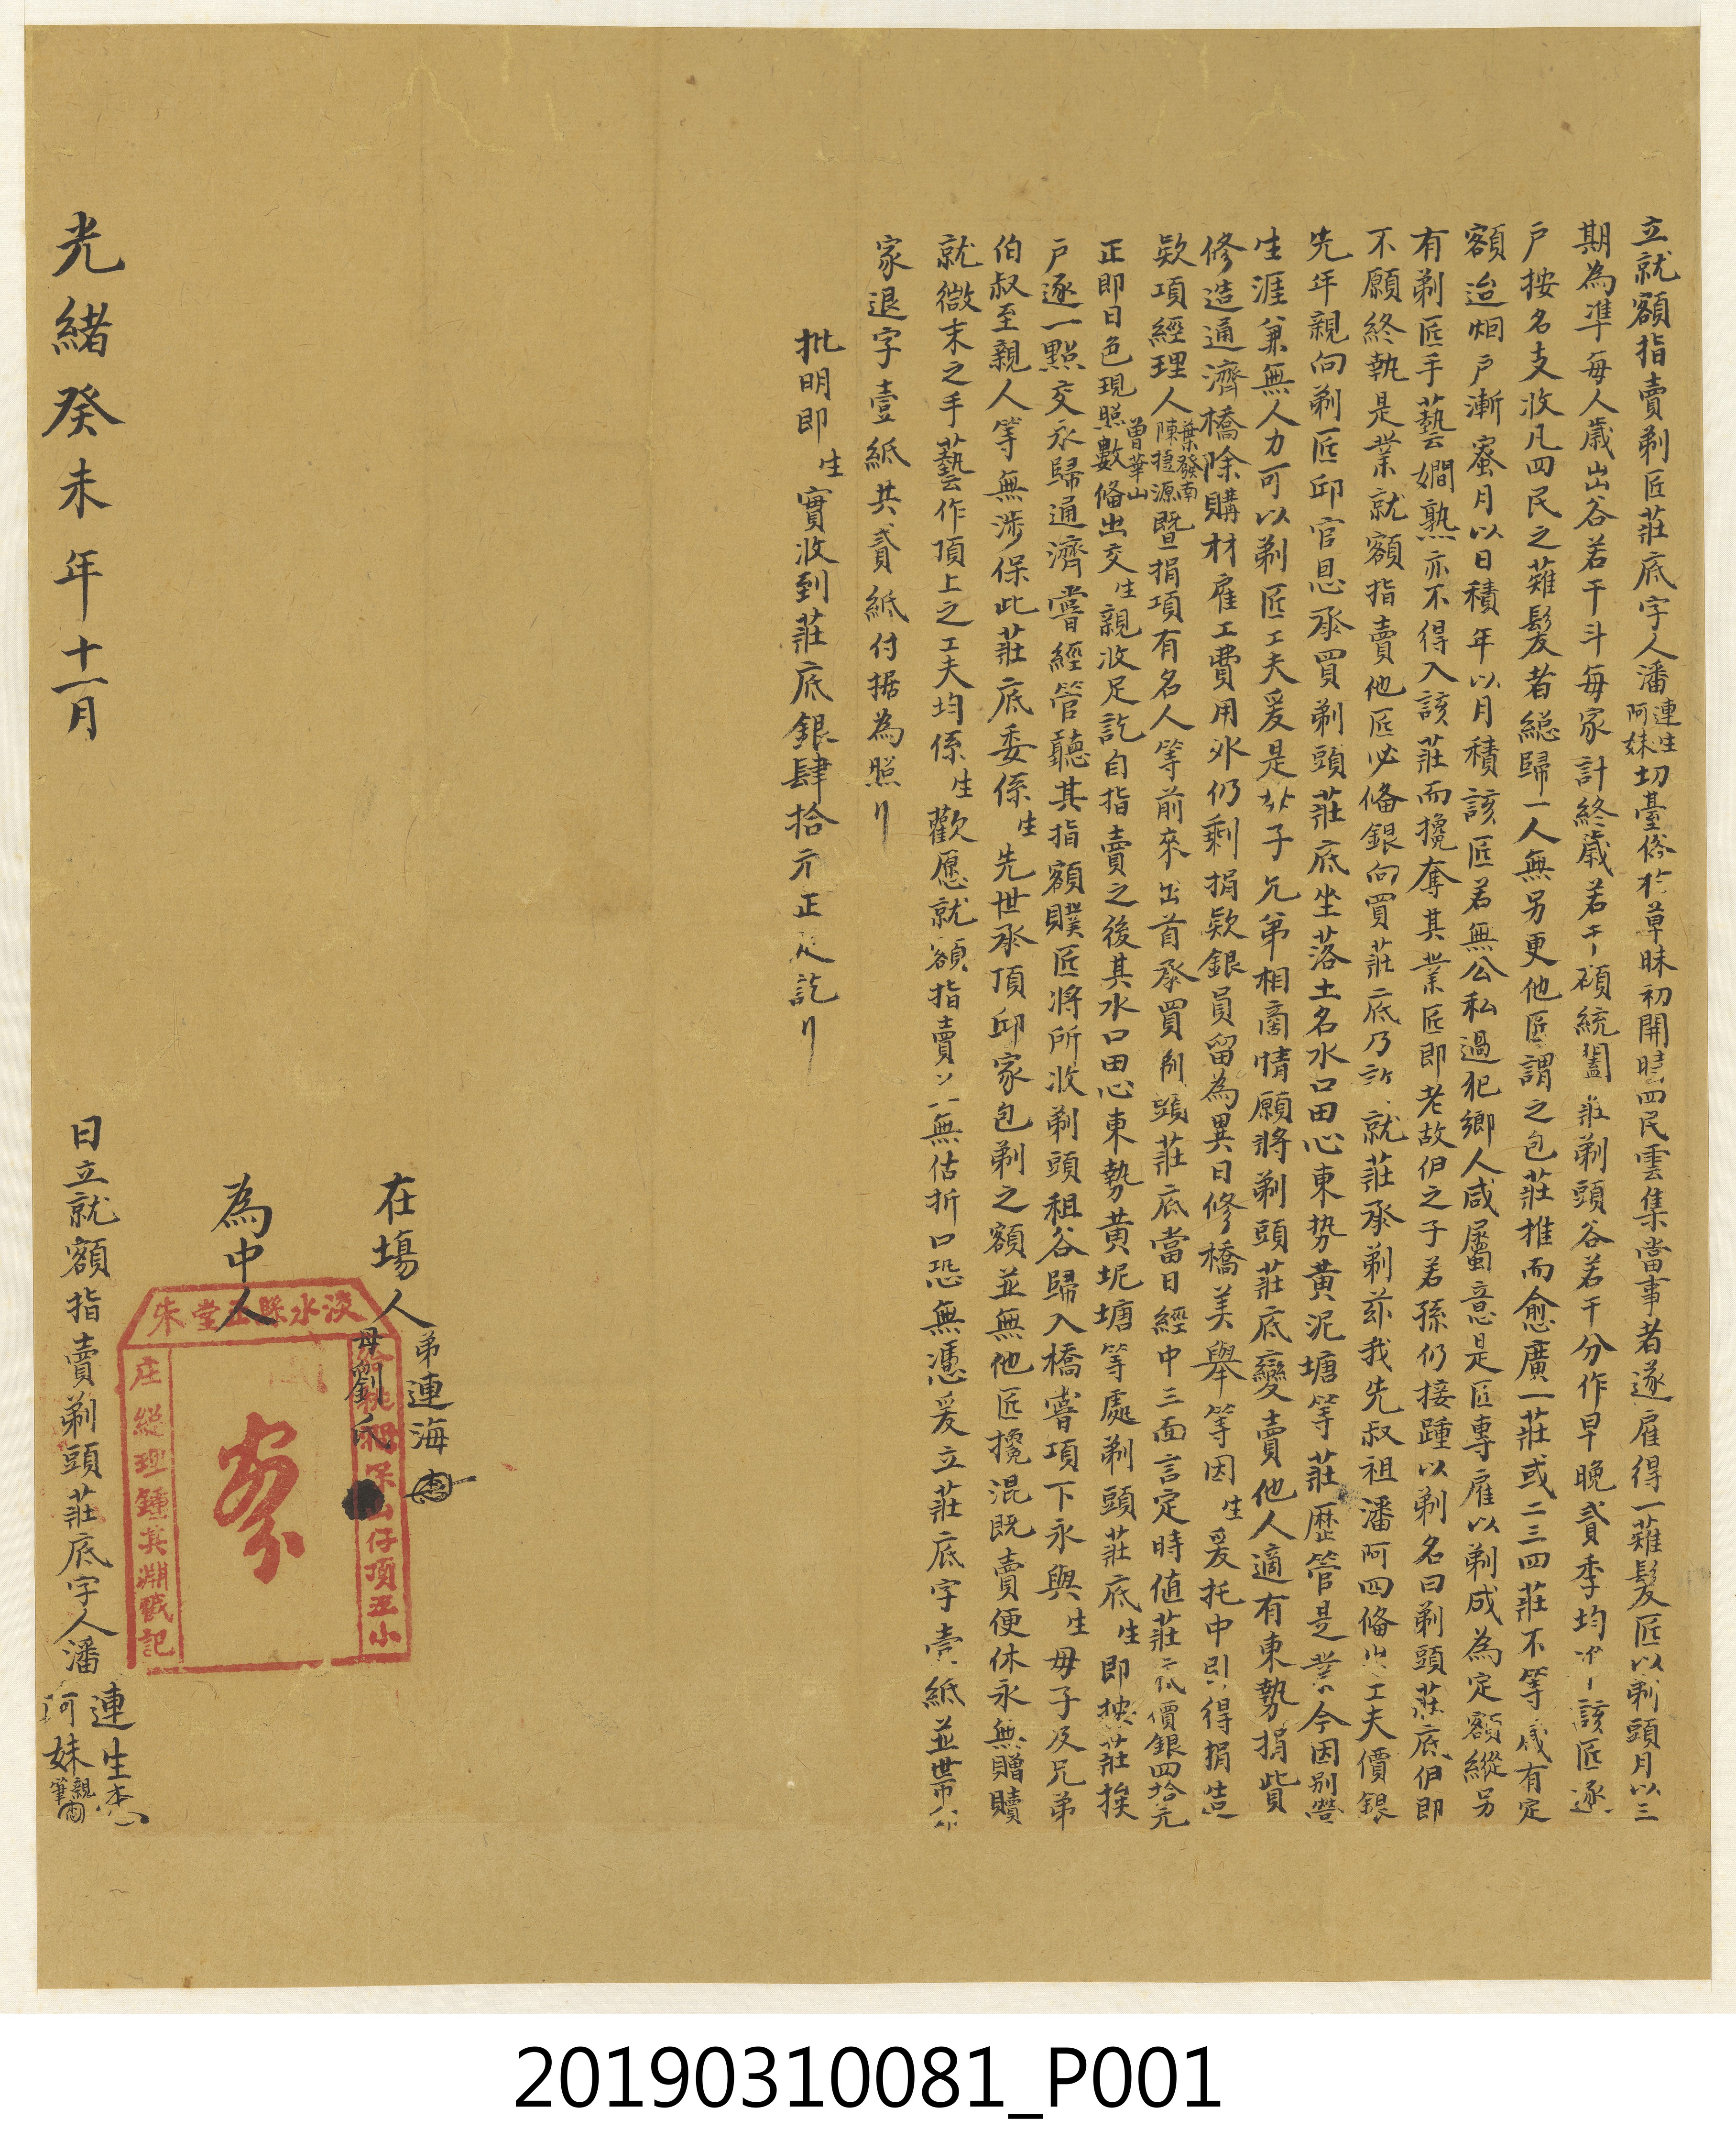 立就額指賣剃匠莊底字人潘連生阿妹切臺俗於草昧初開時四民雲集當事者遂雇得一薙髮匠以剃頭月以三
期為準每人歲出谷若干斗每家計終歲若干碩統闔莊剃頭谷若干分作早晚貳季均收該匠逐
戶按名支收凡四民之薙髮者総歸一人無另更他匠謂之包莊推而愈廣一莊或二三四莊不等歲有定
額迨烟戶漸蜜月以日積年以月積該匠若無公私過犯鄉人咸屬意是匠專雇以剃成為定額縱另
有剃匠手藝嫺熟亦不得入該莊而攙奪其業匠即老故伊之子若孫仍接踵以剃名曰剃頭莊底伊即
不願終執是業就額指賣他匠必俻銀向買莊底乃許就莊承剃茲我先叔祖潘阿四俻出工夫價銀
先年親向剃匠邱官恩承買剃頭莊底坐落土名水口田心東势黃泥塘等莊歷管是業今因別營
生涯兼無人力可以剃匠工夫爰是母子兄弟相商情願將剃頭莊底變賣他人適有東勢捐貲
修造通濟橋除購材雇工費用外仍剩捐欵銀員留為異日修橋美舉等因生爰托中引得捐造
欵項經理人葉發南陳 源曾華山暨捐項有名人等前來出首承買剃頭莊底當日經中三面言定時值莊底價銀四拾元
正即日色現照數俻出交生親收足訖自指賣之後其水口田心東勢黃坭塘等處剃頭莊底生即按莊挨
戶逐一點交永歸通濟嘗經管聽其指額贌匠將所收剃頭租谷歸入橋嘗項下永與生毋子及兄弟
伯叔至親人等無涉保此莊底委係生先世承頂邱家包剃之額並無他匠攙混既賣便休永無贈贖
就微末之手藝作頂上之工夫均係生歡愿就額指賣 無估折口恐無憑爰立莊底字壹紙並帶
家退字壹紙共貳紙付据為照
批明即生實收到莊底銀肆拾元正足訖
在塲人弟連海
母劉氏
為中人
淡水縣正堂朱
桃 保山仔頂五小
庄総理鍾其淵戳記
光緒癸未年十一月
日立就額指賣剃頭莊底字人潘連生阿妹親筆
20190310081_P001